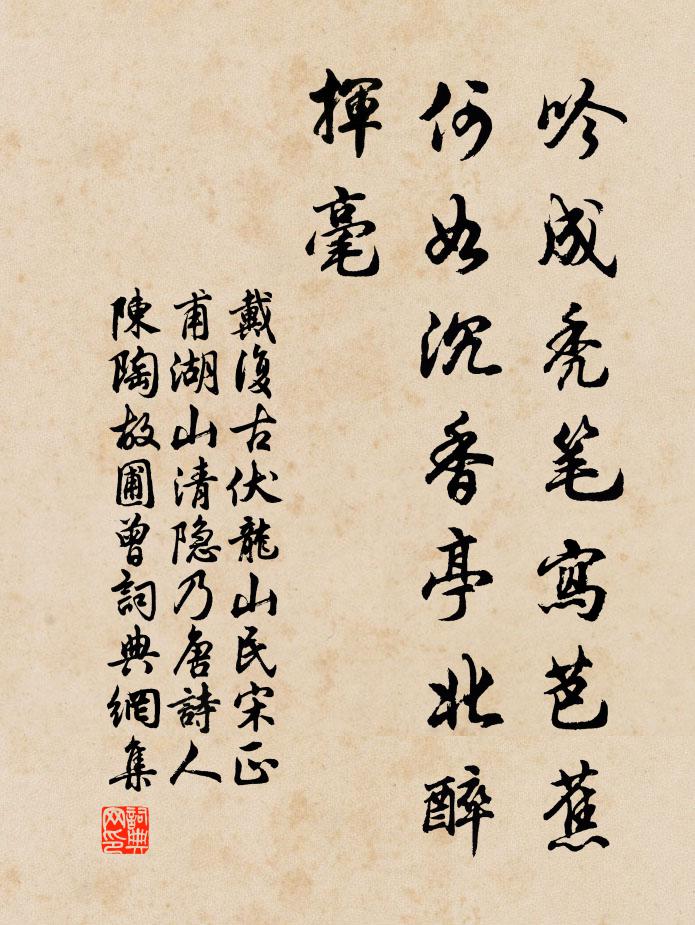 吟成秃笔寫芭蕉
何如沉香亭北醉
揮毫
戴復古伏龍山民宋正
甫湖山清隐乃唐詩人
陳陶故圃曾詞典網集
詞典网印